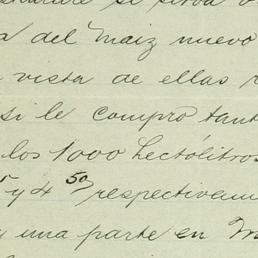 se sirva
del maiz nuevo
vista de ellas
si le compro tant
los 1000 hectólitros
y 4 50 respectivam
y una parte en